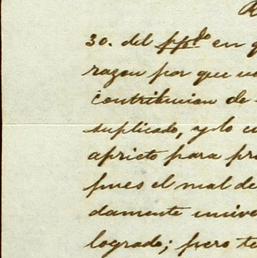 30. del ppdo en q
razon por que
contribucion de
suplicado, y lo
aprieto para
pues el mal de
damente
logrado; pero te